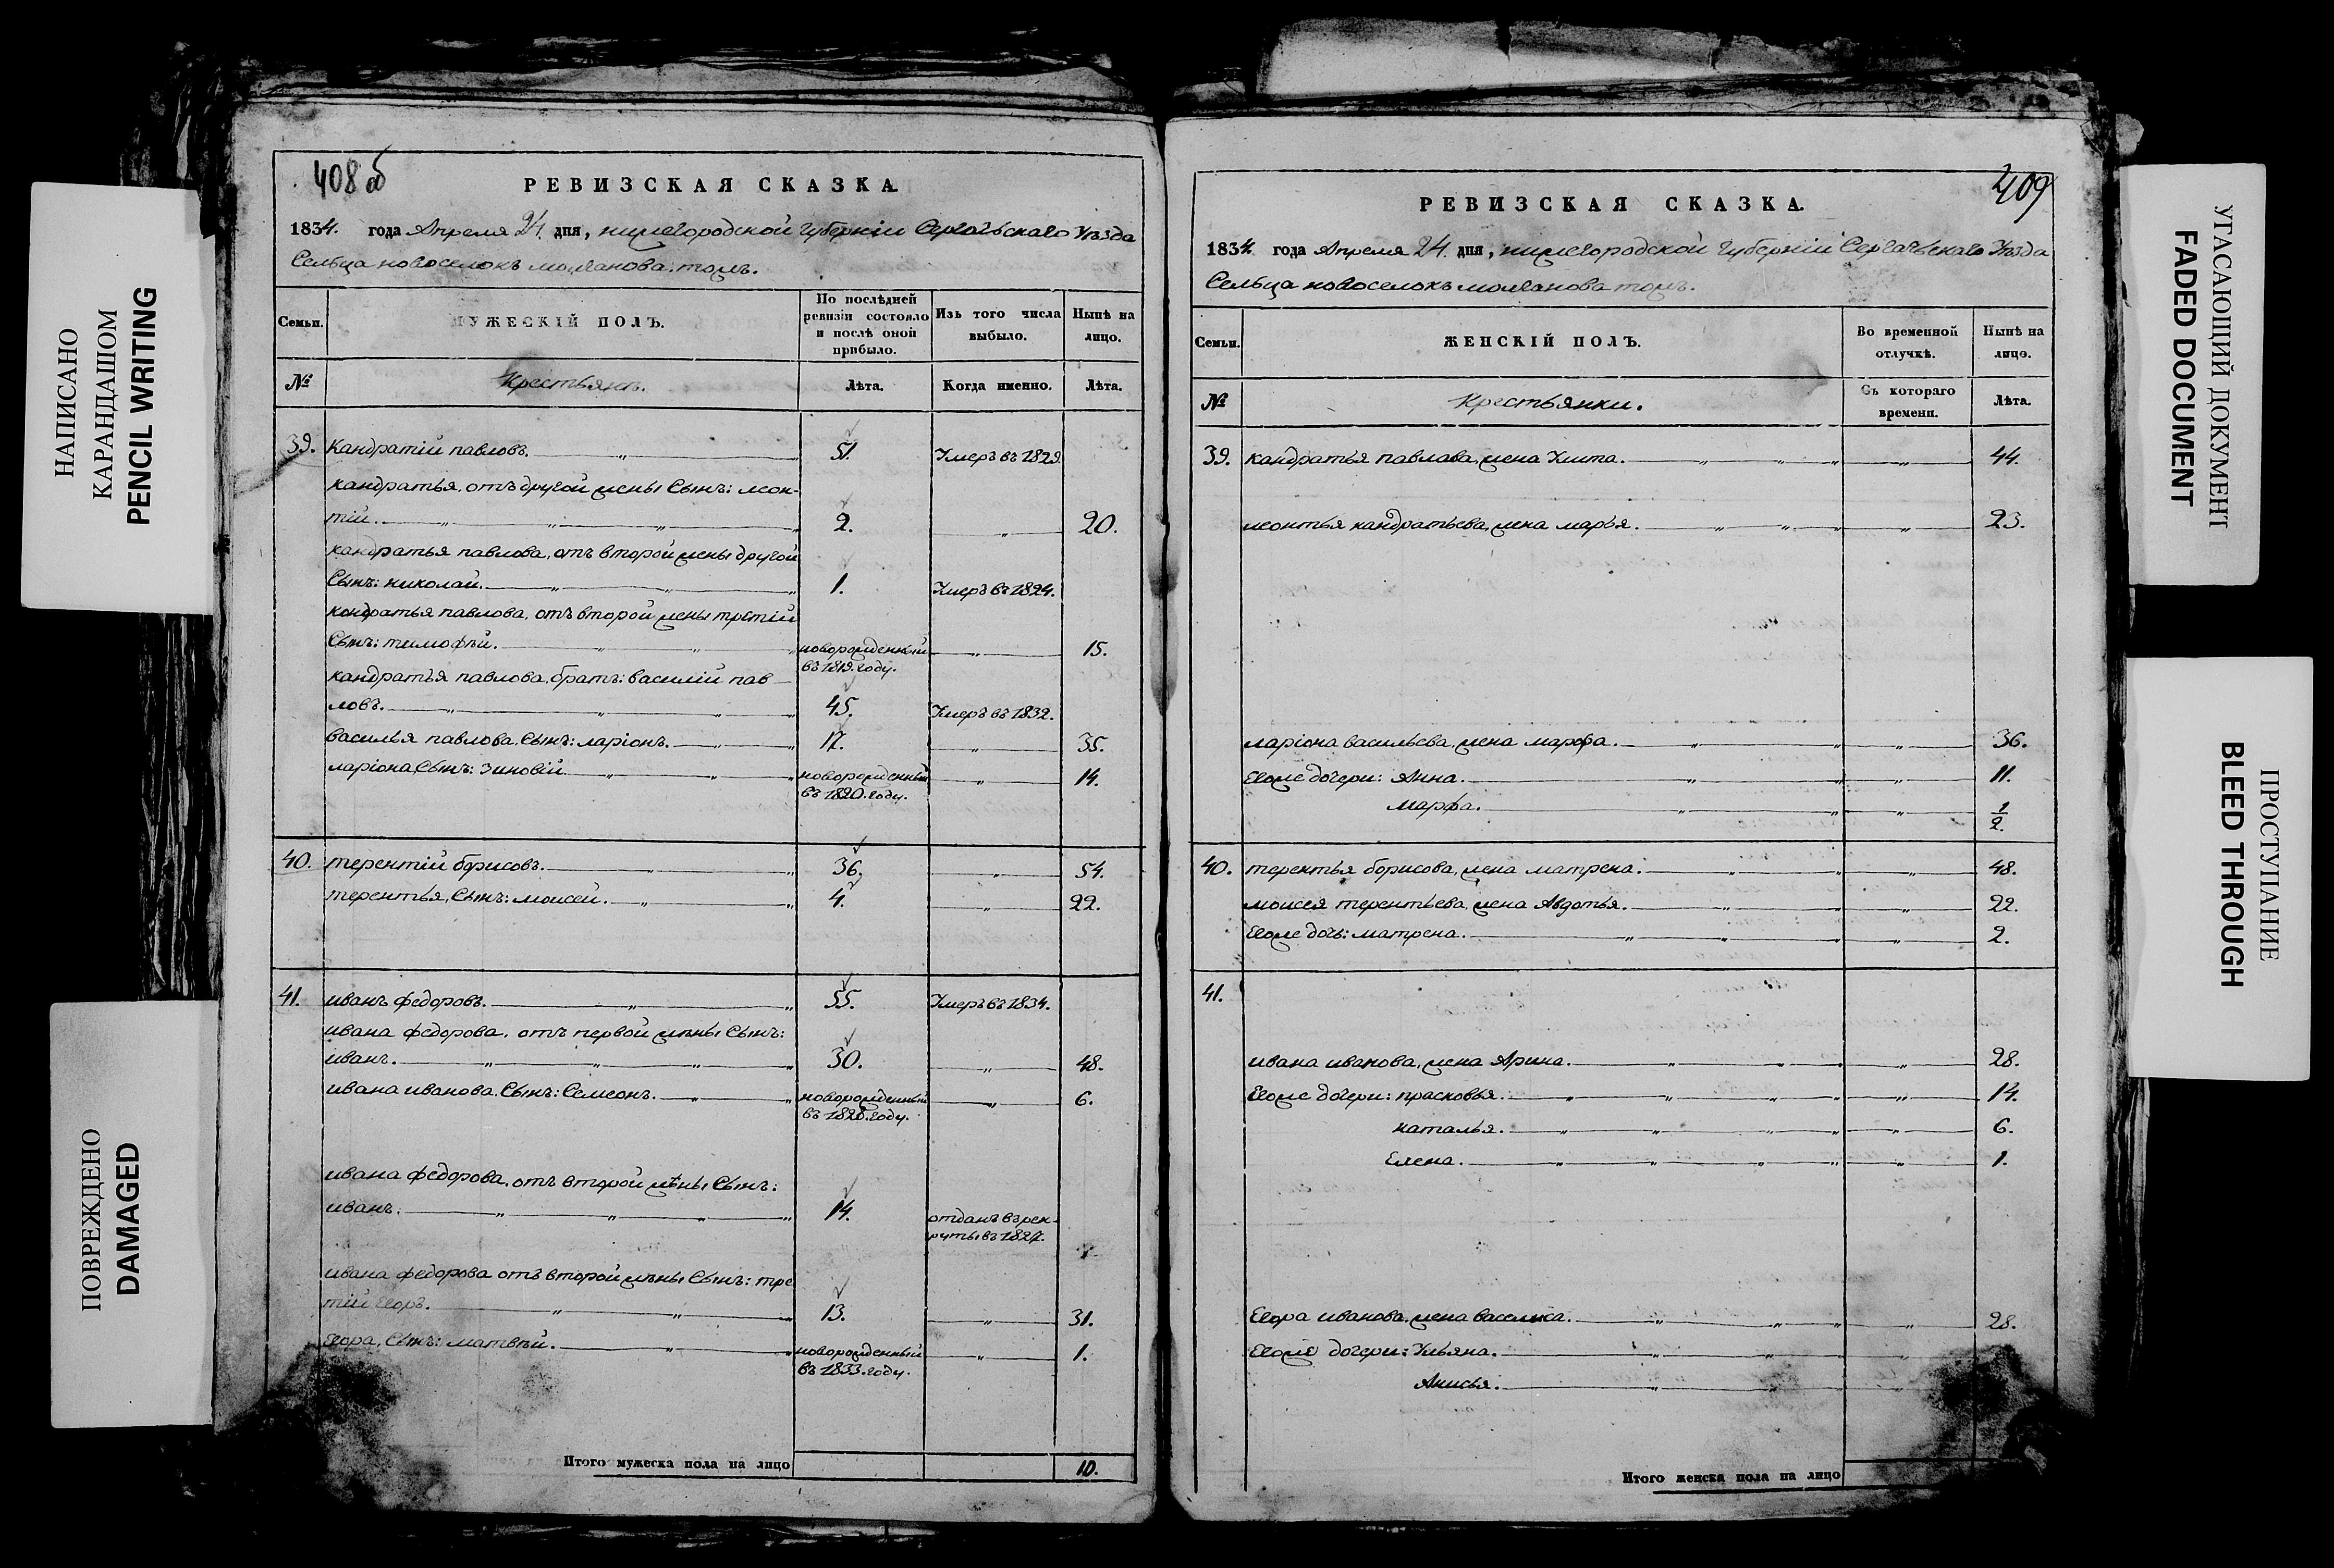 НАПИСАНО
КАРАНДАШОМ
PENCIL WRITING
ПОВРЕЖДЕНО
DAMAGED
408 об
РЕВИЗСКАЯ СКАЗКА
1834. года Апреля 24. дня, нижегородской губерніи Сергачьскаго Уѣзда
Сельца новоселокъ молчанова тожъ.
Семьи.
МУЖЕСКІЙ ПОЛЪ.
По послѣдней ревизіи состояло и послѣ оной прибыло.
Изъ того числа выбыло.
Нынѣ на лицо.
№
Крестьяне.
Лѣта.
Когда именно.
Лѣта.
39. Кандратій павловъ. 51. Умеръ въ 1829.
кандратья, отъ другой жены Сынъ: леон-
тій. 2. 20.
кандратья павлова, отъ второй жены другой
Сынъ: николай. 1. Умеръ въ 1824.
кондратья павлова, отъ второй жены третій
Сынъ: тимофѣй. новорожденный 15.
въ 1819. году.
кандратья павлова, братъ: василій пав
ловъ. 45. Умеръ въ 1832.
василья павлова, Сынъ: ларіонъ. 17. 35.
ларіона Сынъ: Зиновій. новорожденный 14.
въ 1820. году.
40. терентій борисовъ. 36. 54.
терентья, Сынъ: моисей. 4. 22.
41. иванъ федоровъ. 55. Умеръ въ 1834.
ивана федорова, отъ первой жены Сынъ:
иванъ. 30. 48.
ивана иванова, Сынъ: Семеонъ. новорожденный 6.
въ 1828. году.
ивана федорова, отъ второй жены Сынъ:
иванъ. 14. отданъ въ рек-
руты въ 1827.
ивана федорова отъ второй жены Сынъ: тре
тій Егоръ. 13. 31.
Егора, Сынъ: матвѣй. новорожденный 1.
въ 1833. году.
Итого мужеска пола на лицо 10.
409
РЕВИЗСКАЯ СКАЗКА.
1834. года Апреля 24. дня, нижегородской губерніи Сергачьскаго Уѣзда
Сельца новоселокъ молчанова тожъ.
Семьи.
ЖЕНСКІЙ ПОЛЪ.
Во временной отлучкѣ.
Нынѣ на лицо.
№
Крестьянки.
Съ котораго времени.
Лѣта.
39. кандратья павлова, жена Улита. 44.
леонтья кандратьева, жена марья. 23.
ларіона васильева, жена марфа. 36.
Егоже дочери: Анна. 11.
марфа. 1/2.
40. терентья борисова, жена матрена. 48.
моисея терентьева, жена Авдотья. 22.
Егоже дочь: матрена. 2.
41.
ивана иванова, жена Арина. 28.
Егоже дочери: прасковья. 14.
наталья. 6.
Елена. 1.
Егора иванова, жена василиса. 28.
Егоже дочери: Ульяна.
Анисья.
Итого женска пола на лицо
УГАСАЮЩИЙ ДОКУМЕНТ
FADED DOCUMENT
ПРОСТУПАНИЕ
BLEED THROUGH